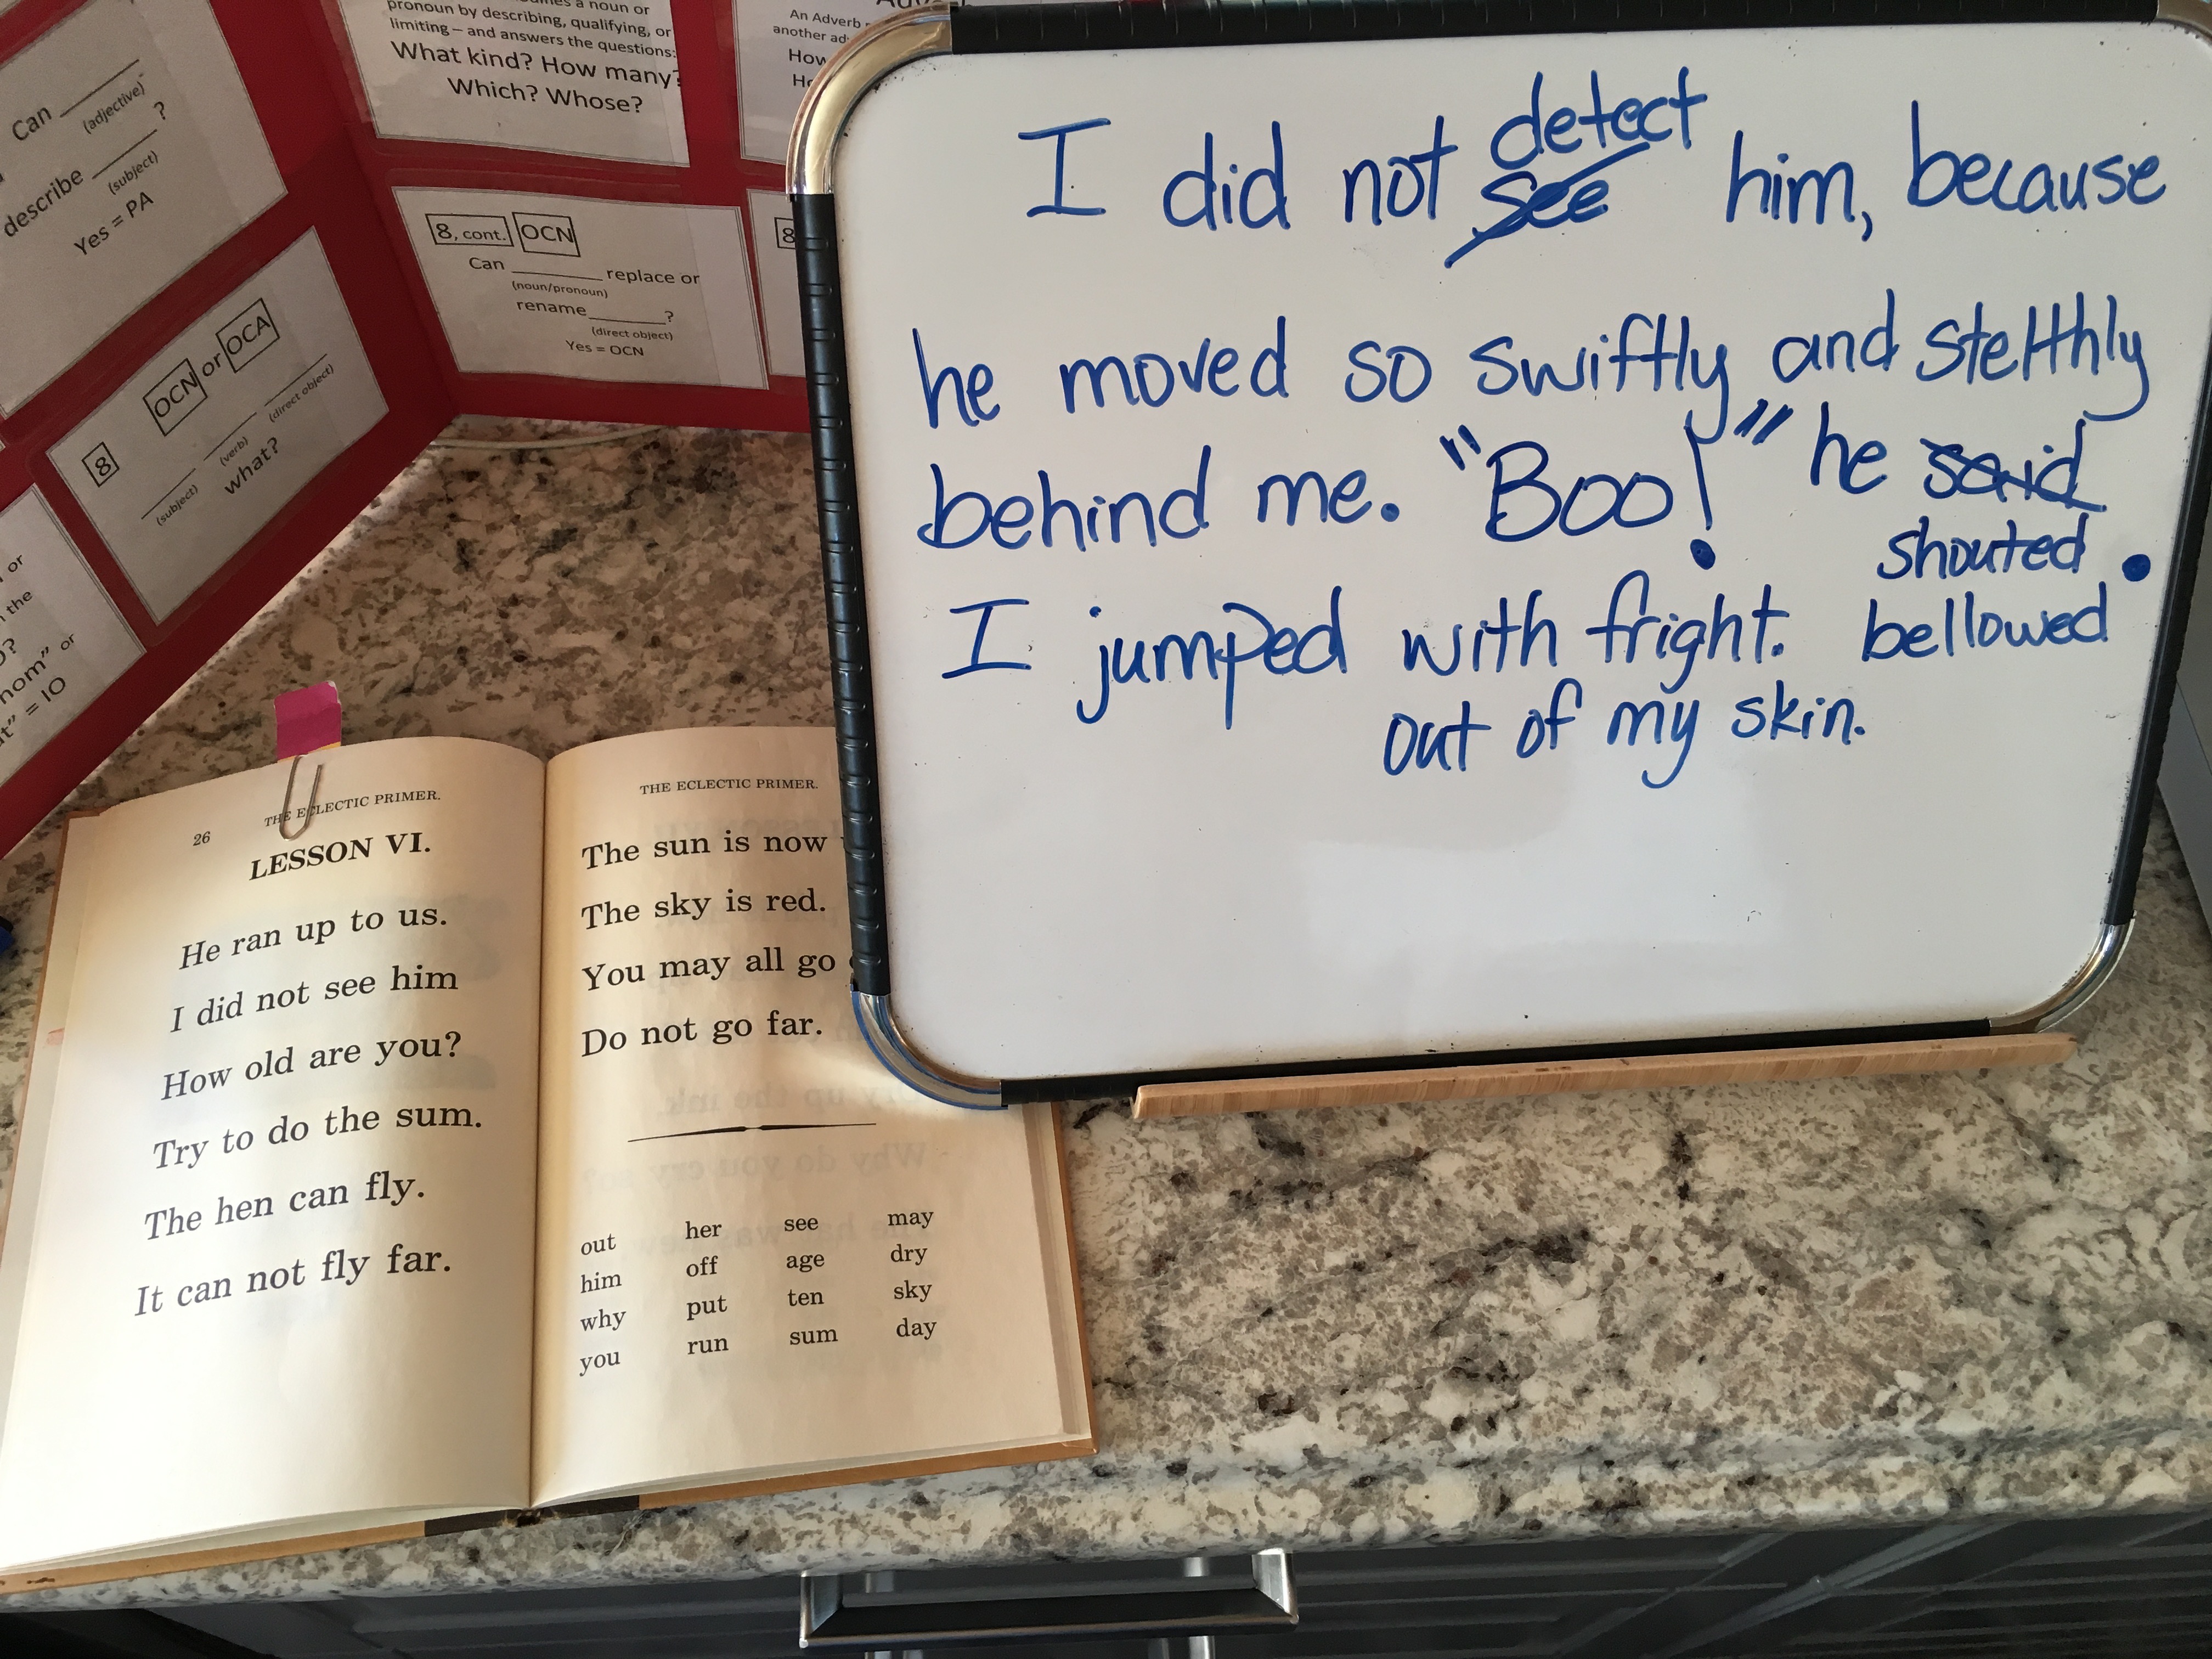 Can
(adjective)
?
describe
(subject)
Yes = PA
8
OCN or OCA
(subject)
(verb)
(direct object)
what?
or
the
?
nom" or
= IO
a noun or
pronoun by describing, qualifying, or
limiting – and answers the questions:
What kind? How many?
Which? Whose?
8, cont. OCN
Can replace or
(noun/pronoun)
rename ?
(direct object)
Yes = OCN
An Adverb
another
How
8
I did not see detect him, because
he moved so swiftly and stelthly
behind me. "Boo!" he said
shouted.
I jumped with fright. bellowed
out of my skin.
26 THE ECLECTIC PRIMER.
LESSON VI.
He ran up to us.
I did not see him
How old are you?
Try to do the sum.
The hen can fly.
It can not fly far.
THE ECLECTIC PRIMER.
The sun is now
The sky is red.
You may all go
Do not go far.
out her see may
him off age dry
why put ten sky
you run sum day